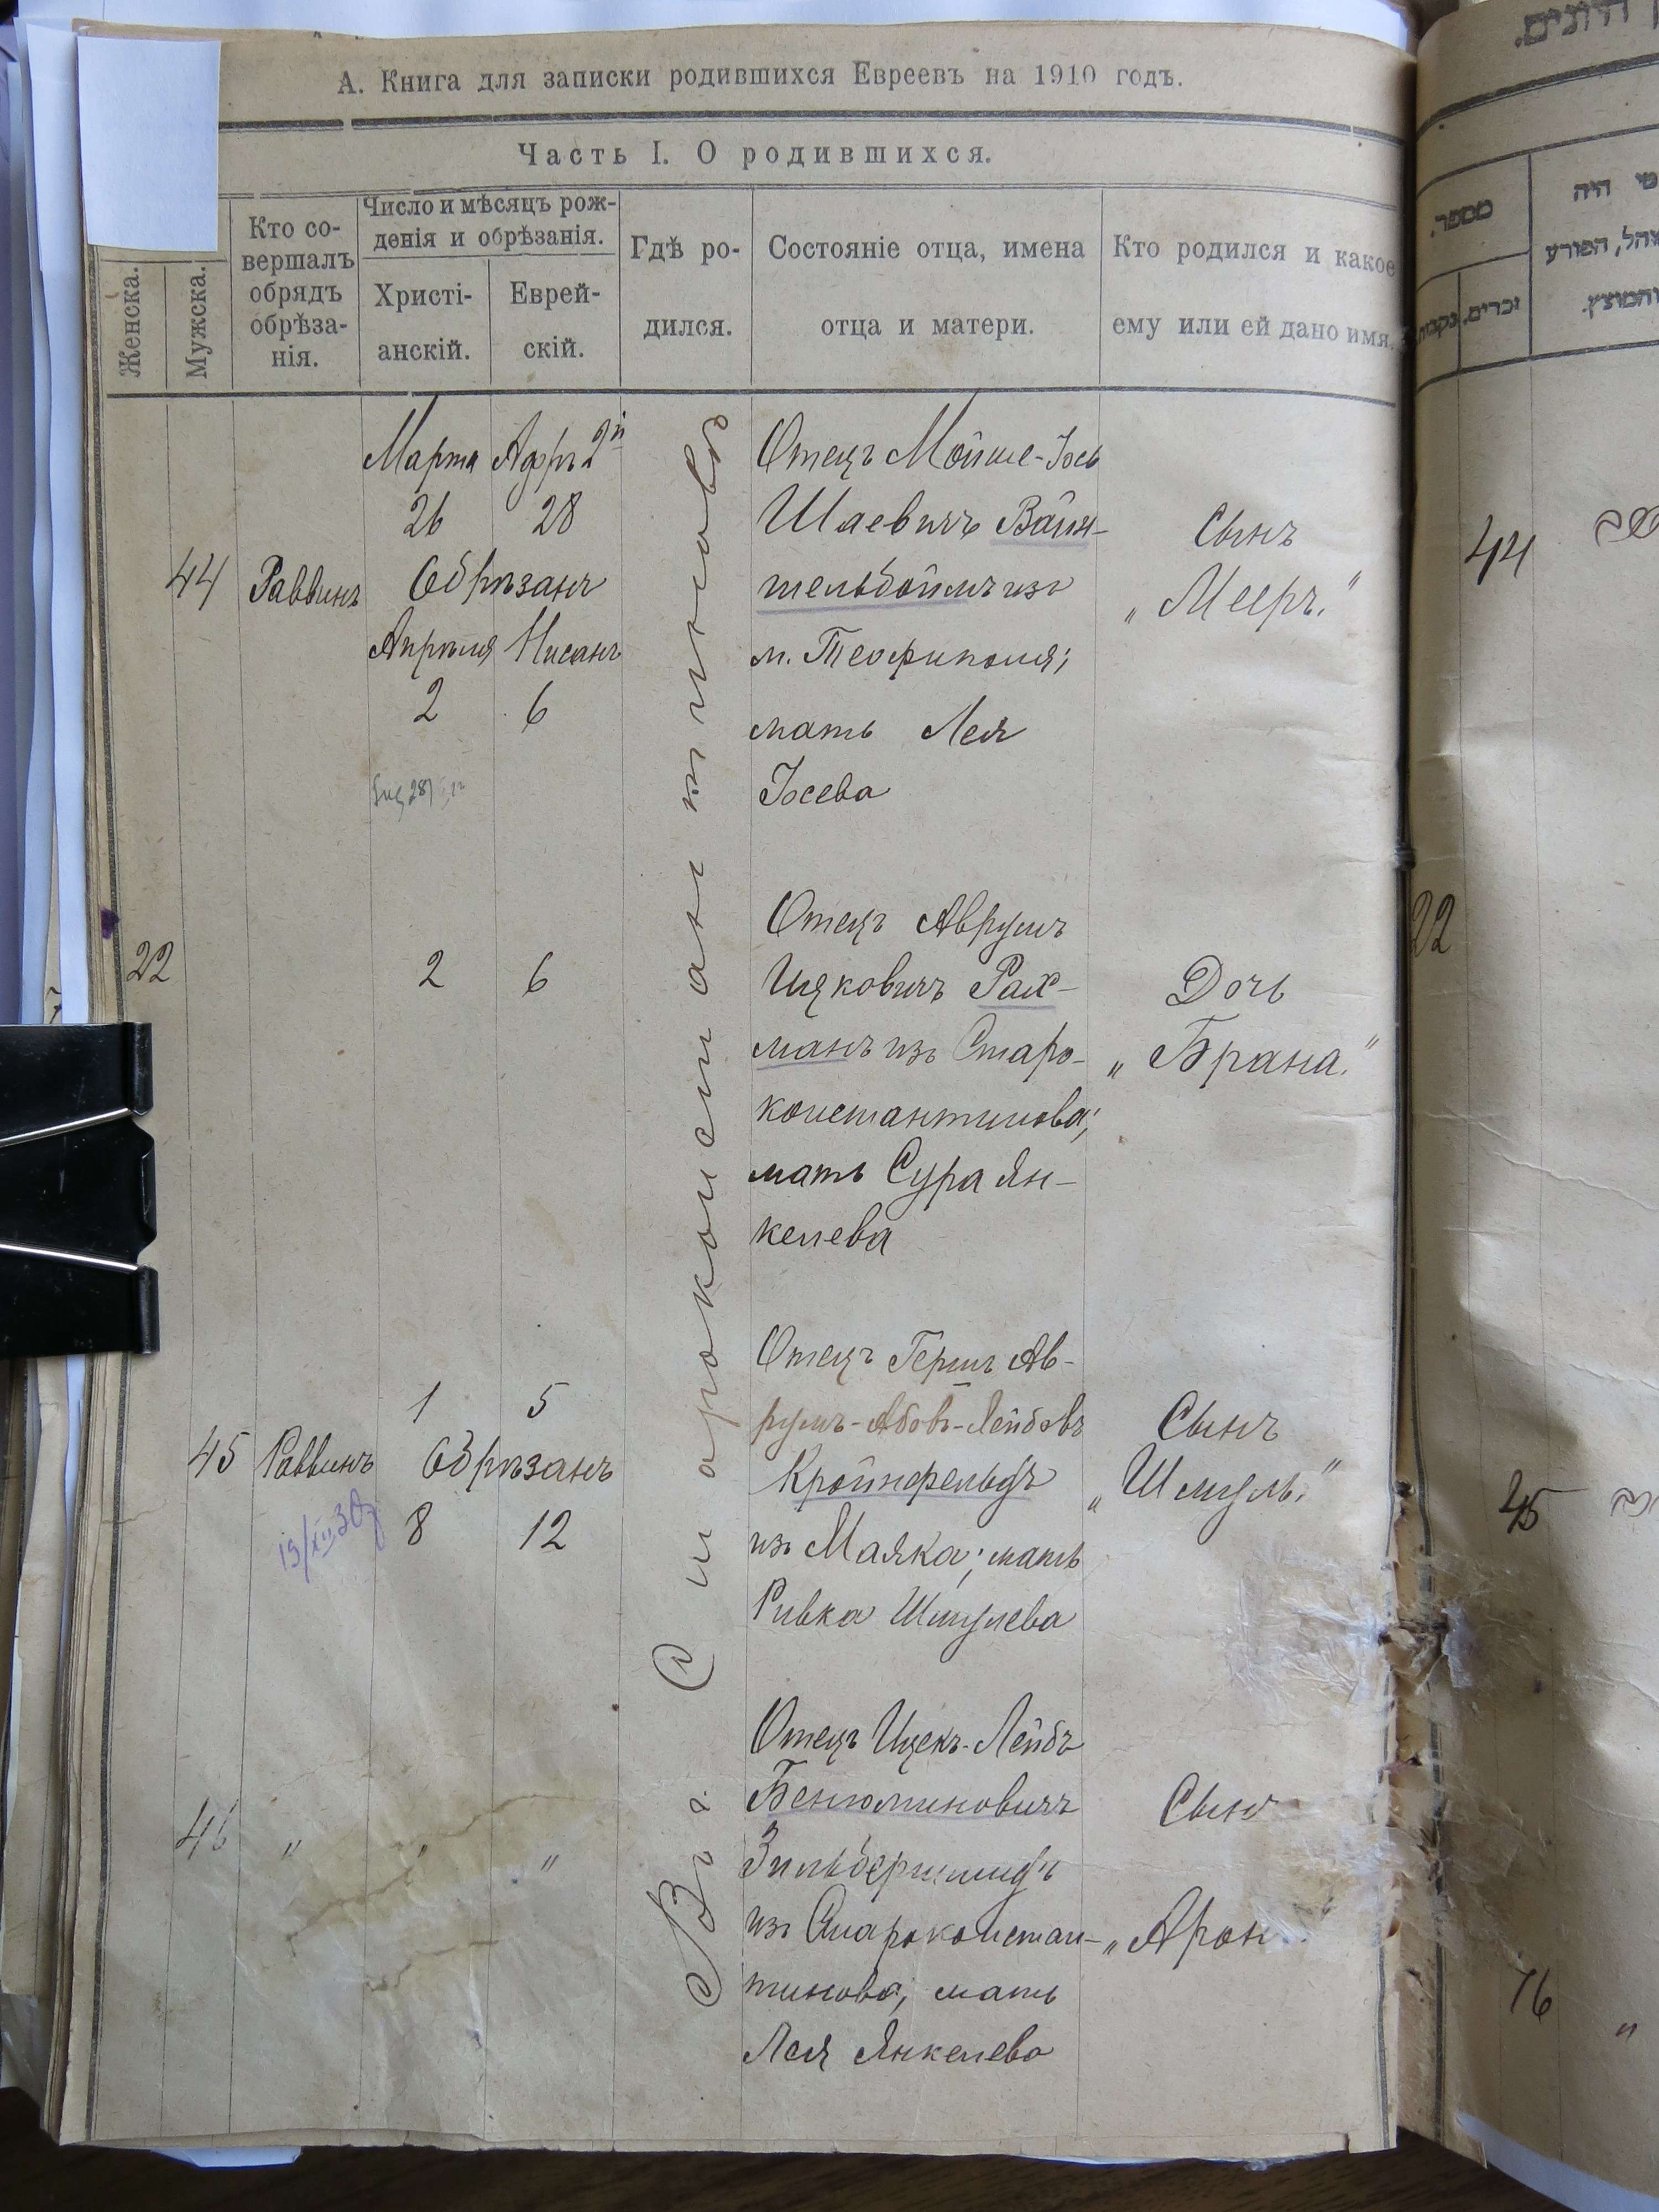 А. Книга для записки родившихся Евреевъ на 1910 годъ.
Часть I. О родившихся.
Женска.
Мужска.
Кто со-
вершалъ
обрядъ
обрѣза-
нія.
Число и мѣсяцъ рож-
денія и обрѣзанія.
Христі-
анскій.
Еврей-
скій.
Гдѣ ро-
дился.
Состояніе отца, имена
отца и матери.
Кто родился и какое
ему или ей дано имя.
Въ г. Староконстантиновѣ
44
Раввинъ
Марта Адръ 2й
26 28
Обрѣзанъ
Апрѣля Нисанъ
2 6
Отецъ Мойше-Іось
Шаевичъ Вайн-
тельбоймъ изъ
м. Теофиполя;
мать Лея
Іосева
Сынъ
„Мееръ."
22
2 6
Отецъ Аврумъ
Ицковичъ Рах-
манъ изъ Старо-
константинова;
мать Сура Ян-
келева
Дочь
„Брана."
45
Раввинъ
1 5
Обрѣзанъ
8 12
Отецъ Гершъ Ав-
румъ-Абовъ-Лейбовъ
Кройнфельдъ
изъ Маяка; мать
Ривка Шмулева
Сынъ
„Шмуль."
46
" " "
Отецъ Ицекъ-Лейбъ
Бенюминовичъ
Зильбершмидъ
изъ Староконстан-
тинова; мать
Лея Янкелева
Сынъ
„Арон
מספר.
זכרים.
מי היה
44
22
45